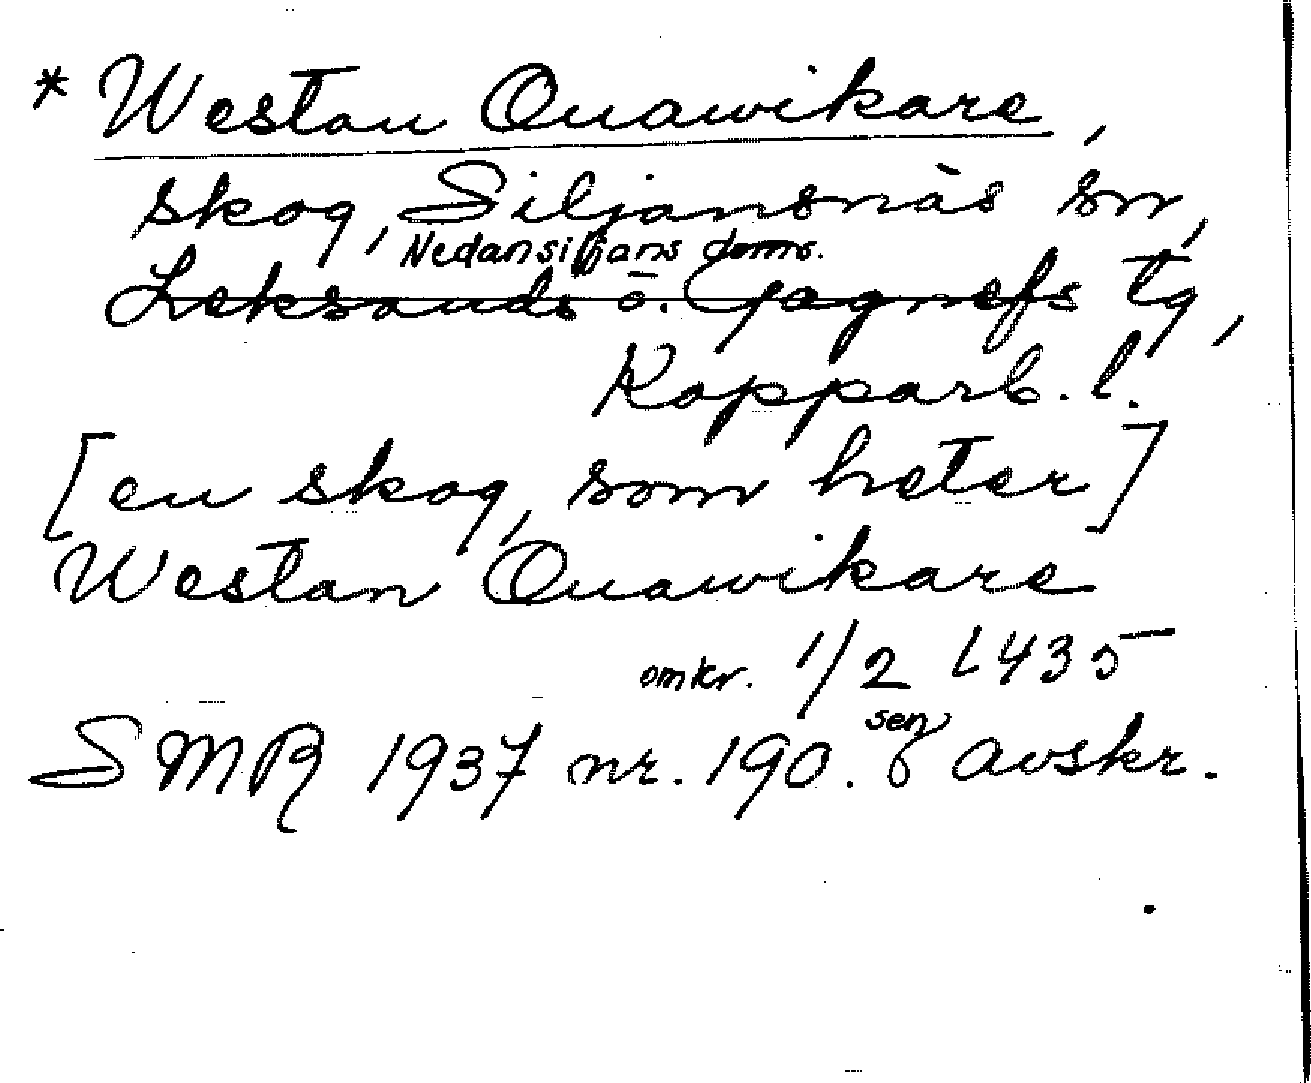 * Westan Quawikare,
skog, Siljansnäs sn,
Nedansiljans doms.
Leksands o. Gagnefs tg,
Kopparb. l.
[en skog, som heter]
Westan Quawikare
omkr. 1/2 1435
sen
SMR 1937 nr. 190. avskr.